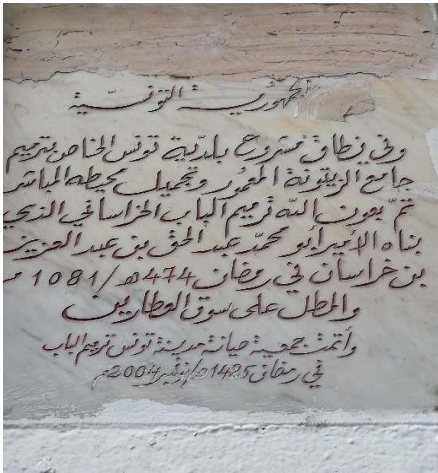 الجمهورية التونسية
وفي نطاق مشروع بلدية تونس الخاص بترميم
جامع الزيتونة المعمور وتجميل محيطه المباشر
تم بعون الله ترميم الباب الخراساني الذي
بناه الأمير أبو محمد عبد الحق بن عبد العزيز
بن خراسان في رمضان 474هـ/1081م
والمطل على سوق العطارين
وأتمت جمعية صيانة مدينة تونس ترميم الباب
في رمضان 1425هـ/نوفمبر 2004م